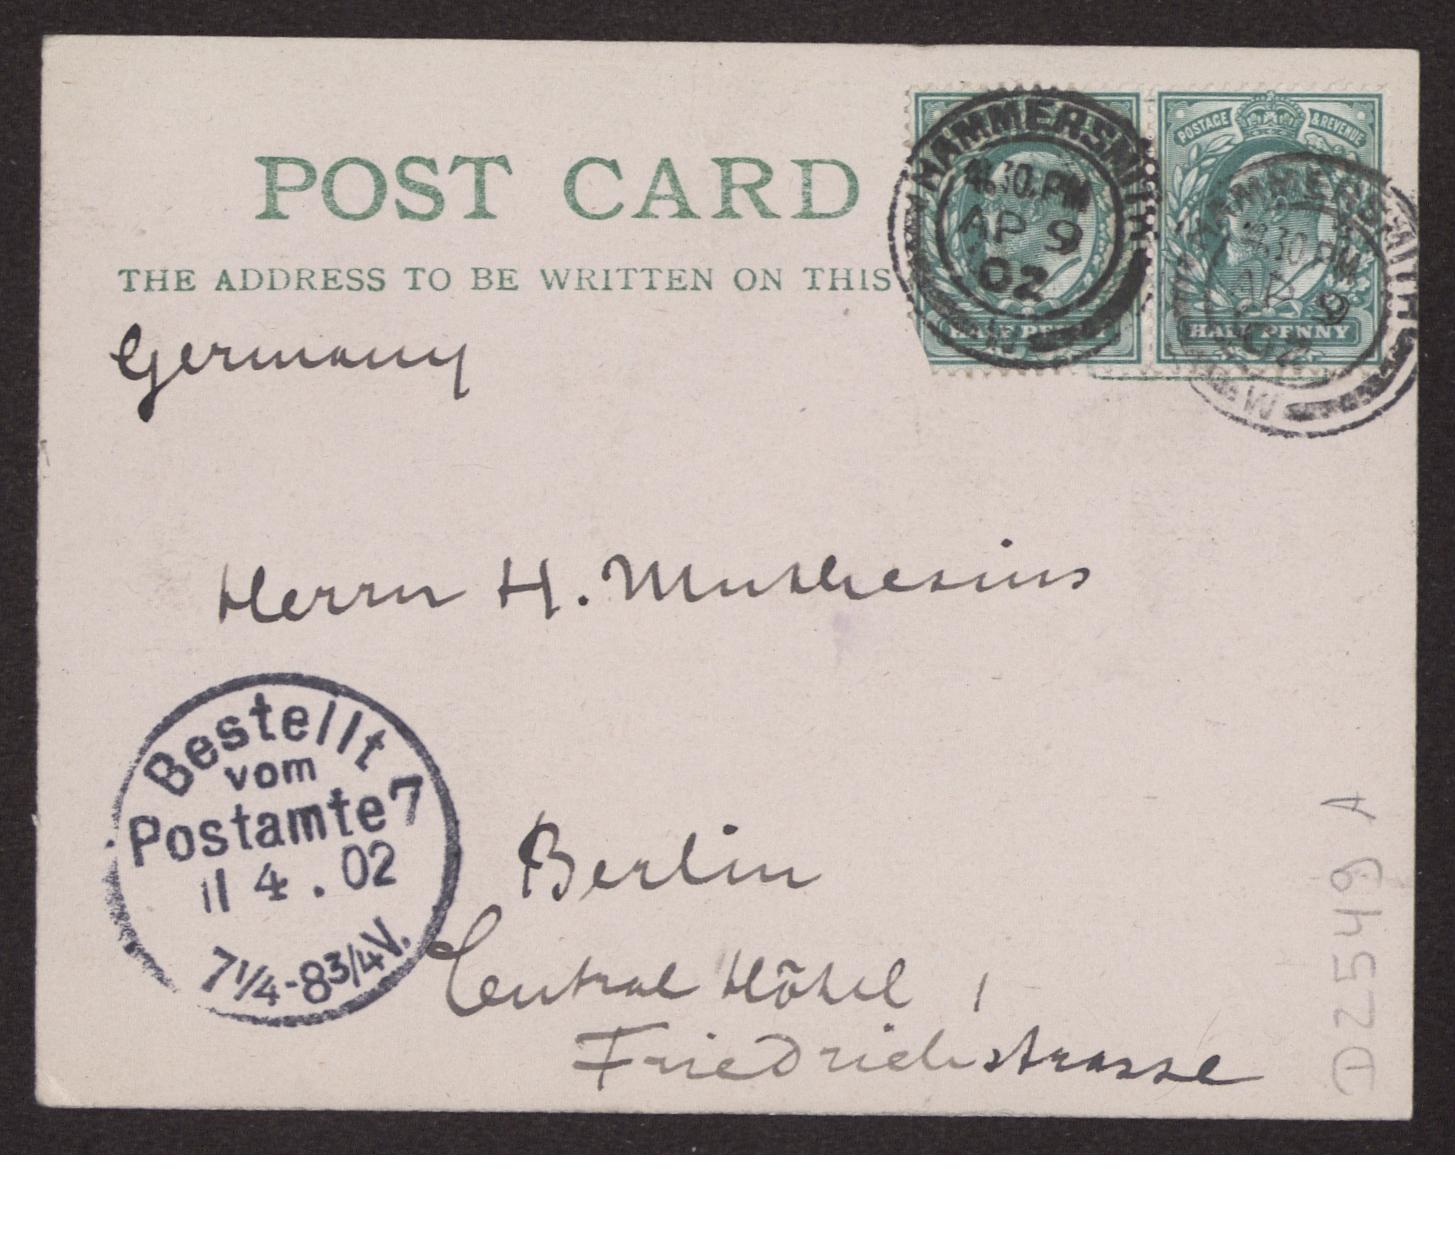 POST CARD
THE ADDRESS TO BE WRITTEN ON THIS
POSTAGE & REVENUE
HALF PENNY
HAMMERSMITH
4.30.PM
AP 9
02
W
HAMMERSMITH
4.30.PM
AP 9
02
W
Germany
Herrn H. Muthesius
Bestellt
vom
Postamte 7
11 4 . 02
7 1/4 - 8 3/4 V.
Berlin
Central Hôtel,
Friedrichstrasse
D2549 A